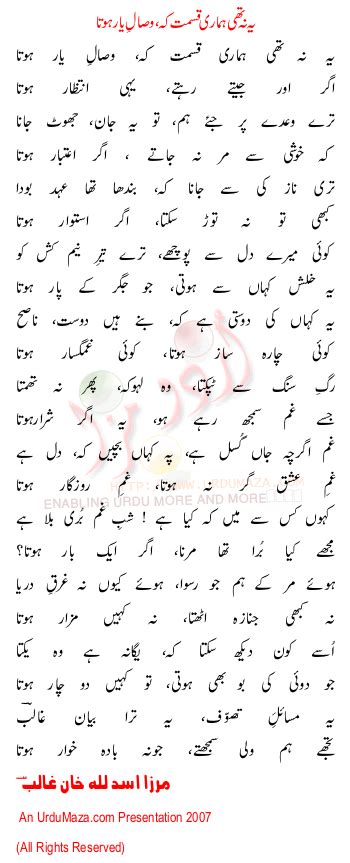 یہ نہ تھی ہماری قسمت کہ، وصالِ یار ہوتا
یہ نہ تھی ہماری قسمت کہ، وصالِ یار ہوتا
اگر اور جیتے رہتے، یہی انتظار ہوتا
ترے وعدے پر جئے ہم، تو یہ جان، جھوٹ جانا
کہ خوشی سے مر نہ جاتے ، اگر اعتبار ہوتا
تری ناز کی سے جانا کہ، بندھا تھا عہد بودا
کبھی تو نہ توڑ سکتا، اگر استوار ہوتا
کوئی میرے دل سے پوچھے، ترے تیرِ نیم کش کو
یہ خلش کہاں سے ہوتی، جو جگر کے پار ہوتا
یہ کہاں کی دوستی ہے کہ، بنے ہیں دوست، ناصح
کوئی چارہ ساز ہوتا، کوئی غمگسار ہوتا
رگِ سنگ سے ٹپکتا، وہ لہوکہ، پھر نہ تھمتا
جسے غم سمجھ رہے ہو، یہ اگر شرارہوتا
غم اگرچہ جاں گُسل ہے، پہ کہاں بچیں کہ، دل ہے
غمِ عشق گر نہ ہوتا، غمِ روزگار ہوتا
HTTP://WWW.URDUMAZA.COM
ENABLING URDU MORE AND MORE
کہوں کس سے میں کہ کیا ہے ! شبِ غم بُری بلا ہے
مجھے کیا بُرا تھا مرنا، اگر ایک بار ہوتا؟
ہوئے مر کے ہم جو رسوا، ہوئے کیوں نہ غرقِ دریا
نہ کبھی جنازہ اٹھتا، نہ کہیں مزار ہوتا
اُسے کون دیکھ سکتا کہ، یگانہ ہے وہ یکتا
جو دوئی کی بو بھی ہوتی، تو کہیں دو چار ہوتا
یہ مسائلِ تصوّف، یہ ترا بیان غالبؔ
تجھے ہم ولی سمجھتے، جونہ بادہ خوار ہوتا
مرزا اسد لله خان غالبؔ
An UrduMaza.com Presentation 2007
(All Rights Reserved)